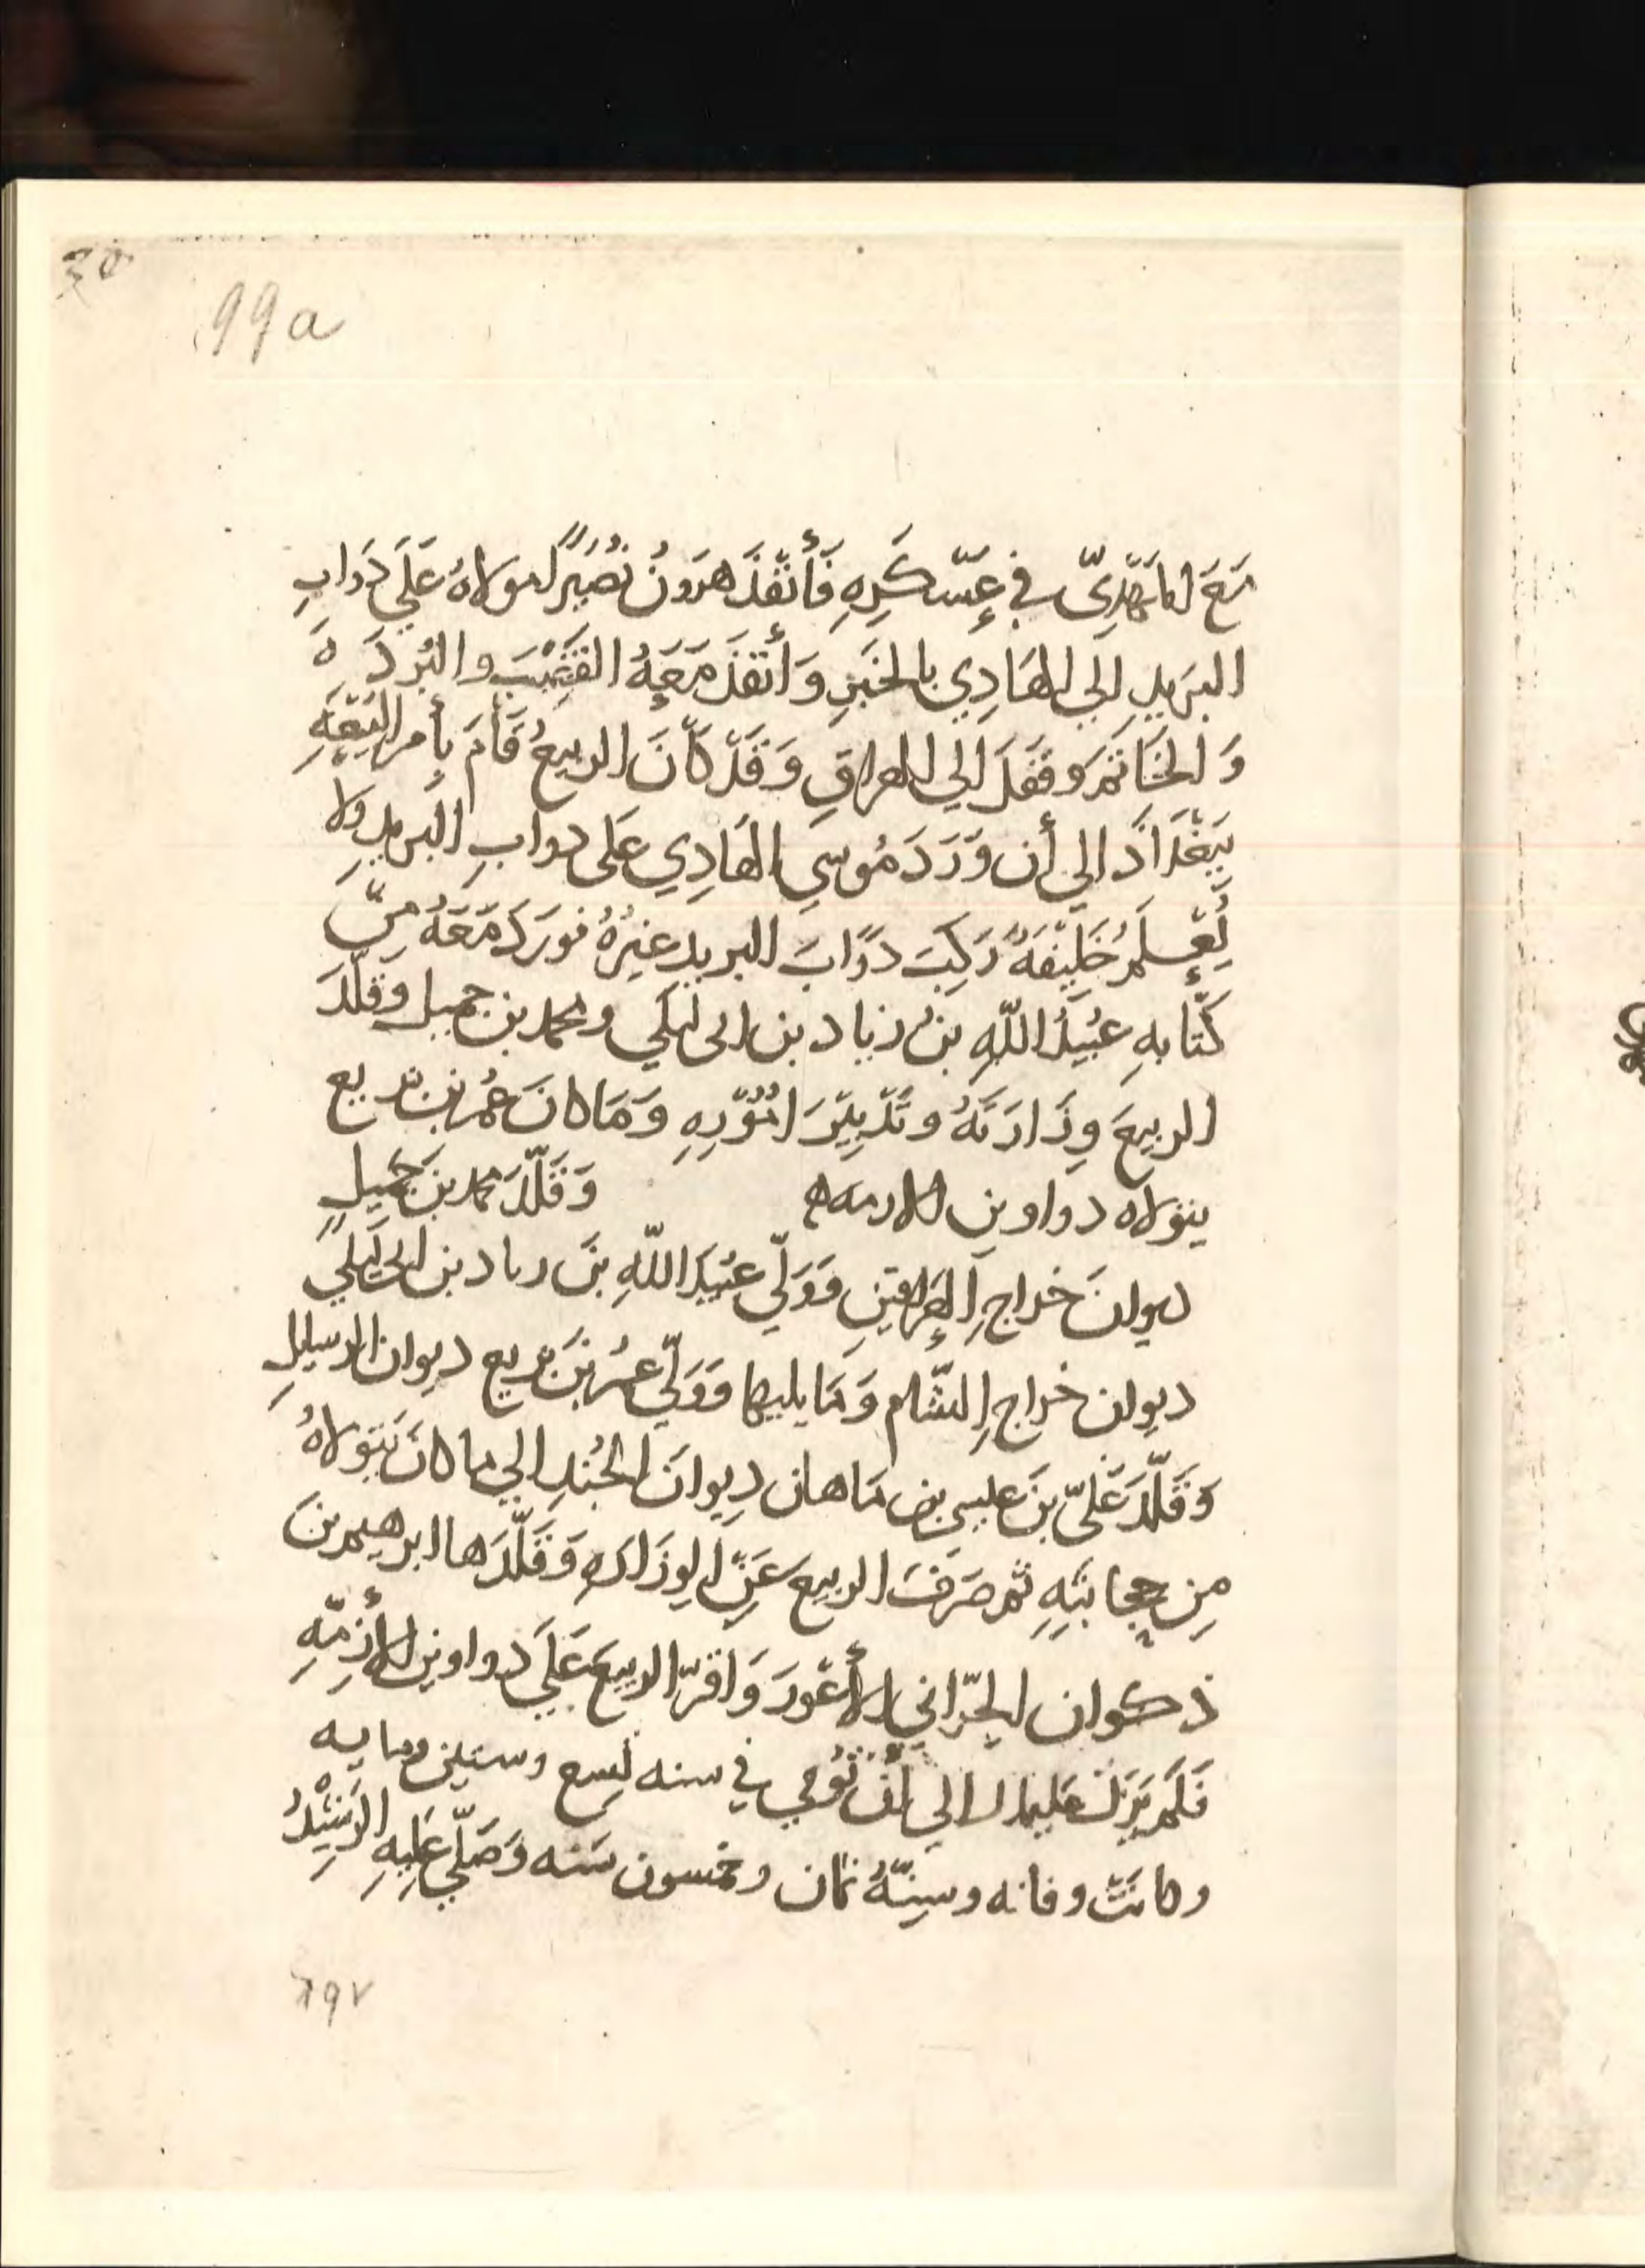 99a
مَعَ المَهْدِيّ في عَسْكَرِهِ فَأَنْفَذَ هرَونُ نُصَيْرًا مولاهُ عَلَي دَوَابِ
البَريدِ إلي الهَادِي بالخَبَرِ وَأَنْفَذَ مَعَهُ القَضِيْبَ والبُردَةَ
وَالخَاتَمَ وقَفَلَ إلي العراقِ وَقَدْ كَانَ الربيعُ قَامَ بِأمرِ البَيْعَةِ
بِبَغْدَادَ الي أن وَرَدَ مُوسي الهَادِي عَلى دوابِ البَريدِ ولا
يُعْلَمُ خَلِيْفَةً رَكِبَ دَوَابَ البريد غيرُهُ فورَدَ مَعَهُ مِنْ
كُتَّابِهِ عُبَيْدُ اللّهِ بنُ زياد بن ابى ليلَي ومحمد بن جميل وقَلَّدَ
الربيعَ وِزَارَتَهُ وتَدْبِيْرَ امُوْرِهِ وَمَا كانَ عُمَر بن بزيع
يتولاه دواوين الازمه وَقَلَّدَ محمد بنَ جَمِيلٍ
ديوانَ خراجِ العِرَاقينِ وَوَلّي عُبَيدَ اللّهِ بنَ زياد بن ابى لَيلَي
ديوان خراجِ الشّام وَمَا يليها وَوَلّي عُمَرَ بنَ بزيع ديوان الرسايلِ
وَقَلَّدَ عَلَيّ بنَ عيسي بن مَاهان دِيوانَ الجُندِ الي ما كانَ يتولاهُ
مِن حِجابَتِهِ ثم صَرَفَ الربيع عَنِ الوِزَارَهِ وَقَلَّدَها ابرهيم بنَ
ذكوان الحَرّانيّ الأعْوَرَ وَاقرّ الربيعَ عَلَي دواوين الأزِمّهِ
فَلَم يَزَلْ عليها الي أنْ تُوُفي في سنه تِسع وستين ومايه
وكانَتْ وفاته وسِنّهُ ثمان وخمسون سَنه وَصَلّي عَلَيهِ الرَشِيْدُ